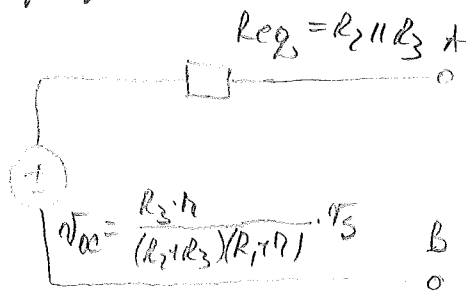 Req = R₂ || R₃ A
+
v_oc = R₃·r / (R₂+R₃)(R₁+r) · v_s
B